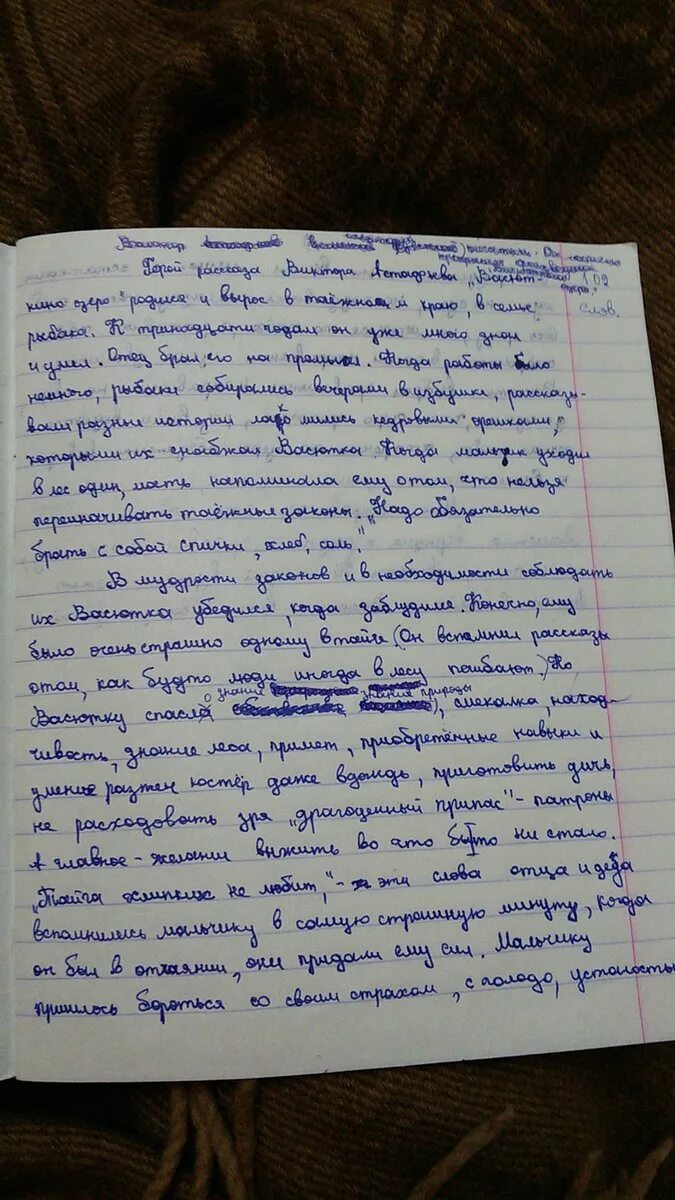 писатель. Он
Герой рассказа Виктора Астафьева „Васют-
109
кино озеро" родился и вырос в таёжном краю, в семье
слов.
рыбака. К тринадцати годам он уже много знал
и умел. Отец брал его на промысел. Когда работы было
немного, рыбаки собирались вечерами в избушке, рассказы-
вали разные истории лакомились кедровыми орешками,
которыми их снабжал Васютка. Когда мальчик уходил
в лес один, мать напоминала ему о том, что нельзя
переиначивать таёжные законы. „Надо обязательно
брать с собой спички, хлеб, соль."
В мудрости законов и в необходимости соблюдать
их Васютка убедился, когда заблудился. Конечно, ему
было очень страшно одному в тайге (Он вспомнил рассказы
о том, как будто люди иногда в лесу погибают.) Но
знание природы
Васютку спасло), смекалка, наход-
чивость, знание леса, примет, приобретённые навыки и
умение разжеч костёр даже в дождь, приготовить дичь,
не расходовать зря „драгоценный припас" - патроны
А главное - желание выжить во что бы то ни стало.
„Тайга хлипких не любит," - эти слова отца и деда
вспомнились мальчику в самую страшную минуту, когда
он был в отчаянии, они придали ему сил. Мальчику
пришлось бороться со своим страхом, с голодо, усталостью